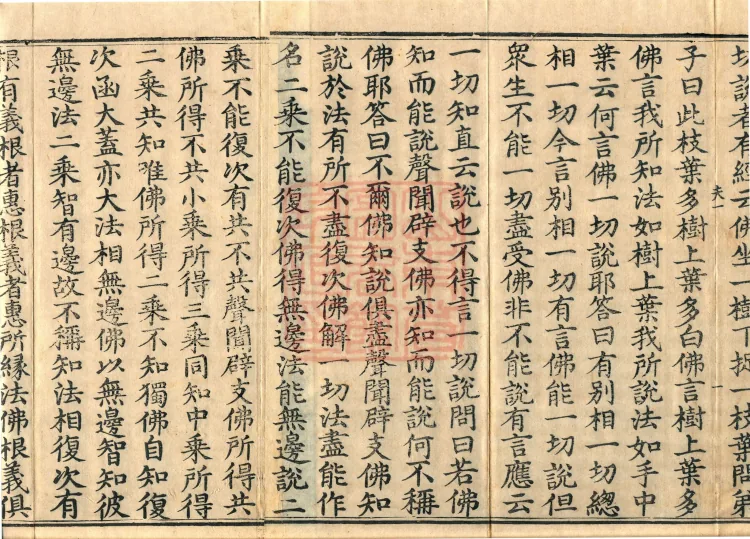 切說者有經云佛坐一樹下捉一枝葉問弟
子曰此枝葉多樹上葉多白佛言樹上葉多
佛言我所知法如樹上葉我所說法如手中
葉云何言佛一切說耶答曰有別相一切緫
相一切今言別相一切有言佛能一切說但
衆生不能一切盡受佛非不能說有言應云
一切知直云說也不得言一切說問曰若佛
知而能說聲聞辟支佛亦知而能說何不稱
佛耶答曰不爾佛知說俱盡聲聞辟支佛知
說於法有所不盡復次佛解一切法盡能作
名二乘不能復次佛得無邊法能無邊說二
乘不能復次有共不共聲聞辟支佛所得共
佛所得不共小乘所得三乘同知中乘所得
二乘共知唯佛所得二乘不知獨佛自知復
次函大蓋亦大法相無邊佛以無邊智知彼
無邊法二乘智有邊故不稱知法相復次有
根有義根者惠根義者惠所緣法佛根義俱